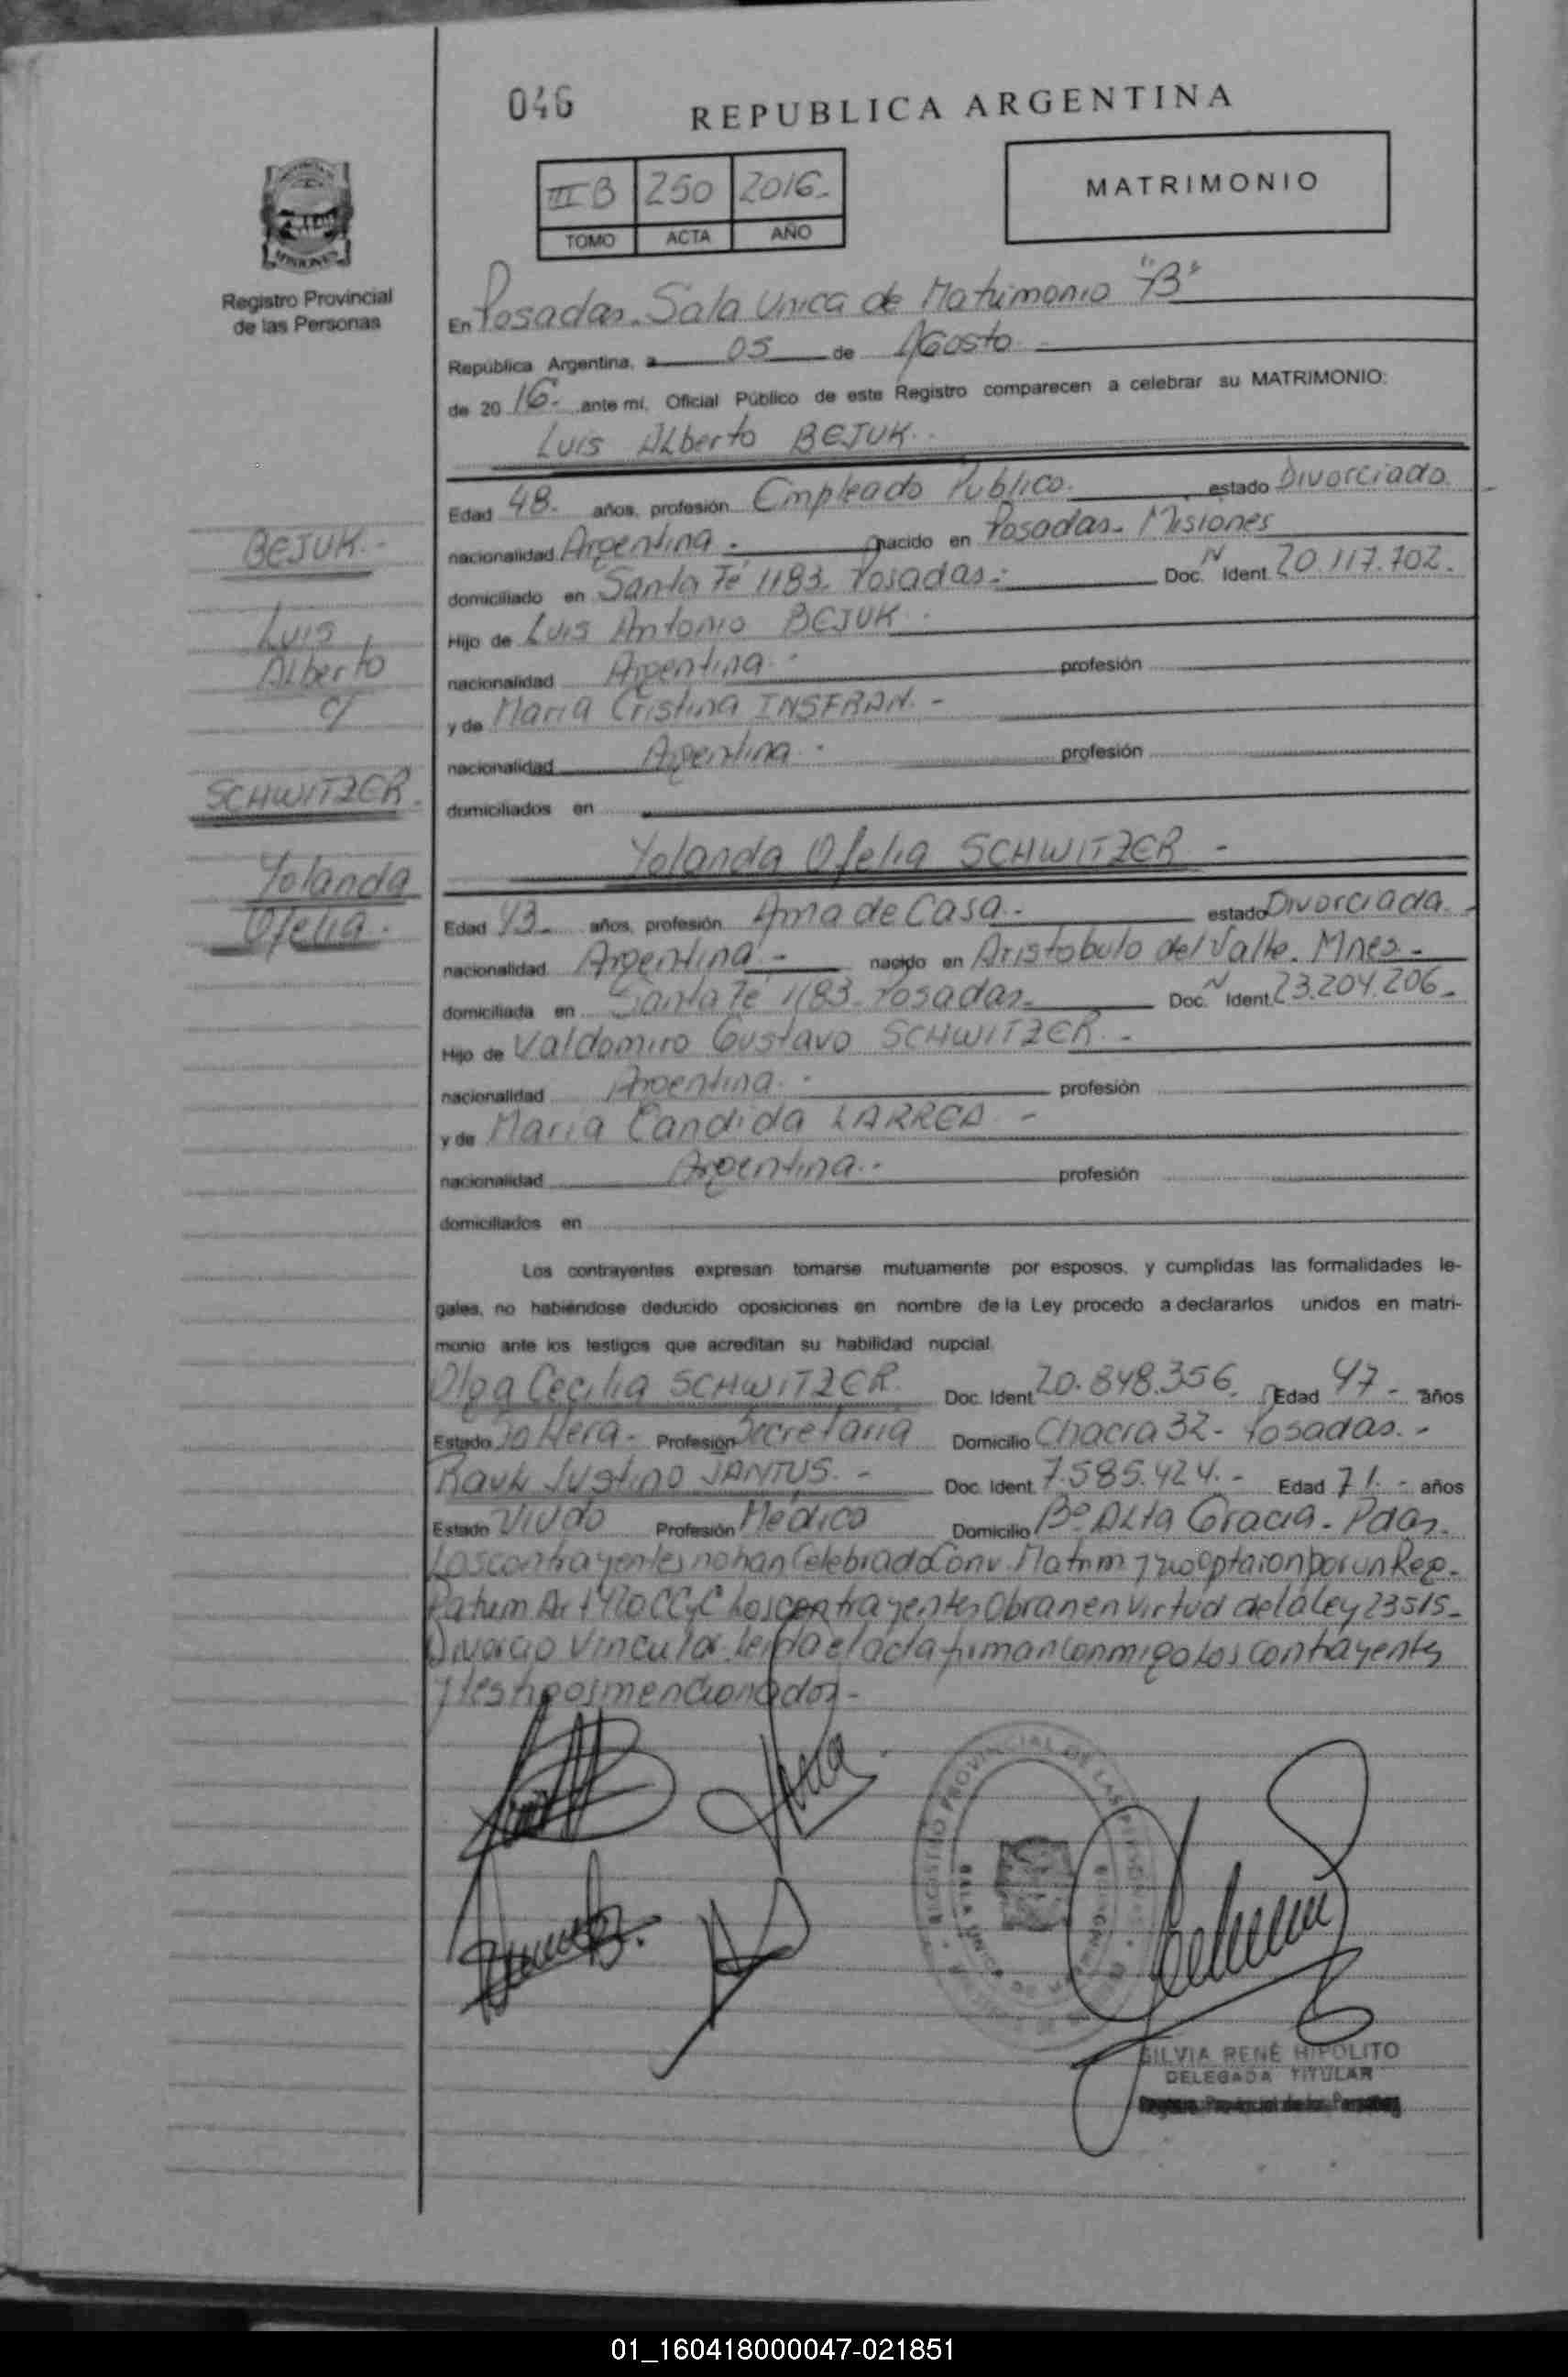 046
REPUBLICA ARGENTINA
III B 250 2016.-
TOMO ACTA AÑO
MATRIMONIO
MISIONES
Registro Provincial
de las Personas
En Posadas. Sala Unica de Matrimonio "B"
República Argentina, a 05 de Agosto
de 20 16.- ante mí, Oficial Público de este Registro comparecen a celebrar su MATRIMONIO:
Luis Alberto BEJUK.-
Edad 48.- años, profesión Empleado Publico. estado Divorciado.
nacionalidad Argentina.- nacido en Posadas. Misiones
domiciliado en Santa Fé 1183. Posadas.- Doc. N Ident. 20.117.702.
Hijo de Luis Antonio BEJUK.
nacionalidad Argentina.- profesión
y de Maria Cristina INSFRAN.-
nacionalidad Argentina.- profesión
domiciliados en
Yolanda Ofelia SCHWITZER.-
Edad 43.- años, profesión Ama de Casa.- estado Divorciada.-
nacionalidad Argentina.- nacido en Aristobulo del Valle. Mnes.-
domiciliada en Santa Fé 1183. Posadas.- Doc. N Ident. 23.204.206.-
Hijo de Valdomiro Gustavo SCHWITZER.-
nacionalidad Argentina.- profesión
y de Maria Candida LARREA.-
nacionalidad Argentina.- profesión
domiciliados en
Los contrayentes expresan tomarse mutuamente por esposos, y cumplidas las formalidades le-
gales, no habiéndose deducido oposiciones en nombre de la Ley procedo a declararlos unidos en matri-
monio ante los testigos que acreditan su habilidad nupcial.
Olga Cecilia SCHWITZER. Doc. Ident. 20.848.356. Edad 47.- años
Estado Soltera.- Profesión Secretaria Domicilio Chacra 32.- Posadas.-
Raul Justino JANTUS.- Doc. Ident. 7.585.424.- Edad 71.- años
Estado Viudo Profesión Médico Domicilio Bº Alta Gracia. Pdas.
Los contrayentes no han Celebrado Conv. Matrim y no optaron por un Reg.
Patrim Art 420 CCyC Los contrayentes Obran en Virtud de la Ley 23515.
Divorcio Vincular. Leida el acta firman conmigo Los contrayentes
y testigos mencionados.-
BEJUK.-
Luis
Alberto
c/
SCHWITZER.
Yolanda
Ofelia.
REGISTRO PROVINCIAL DE LAS PERSONAS
SALA UNICA DE
SILVIA RENÉ HIPOLITO
DELEGADA TITULAR
Registro Provincial de las Personas
01_160418000047-021851